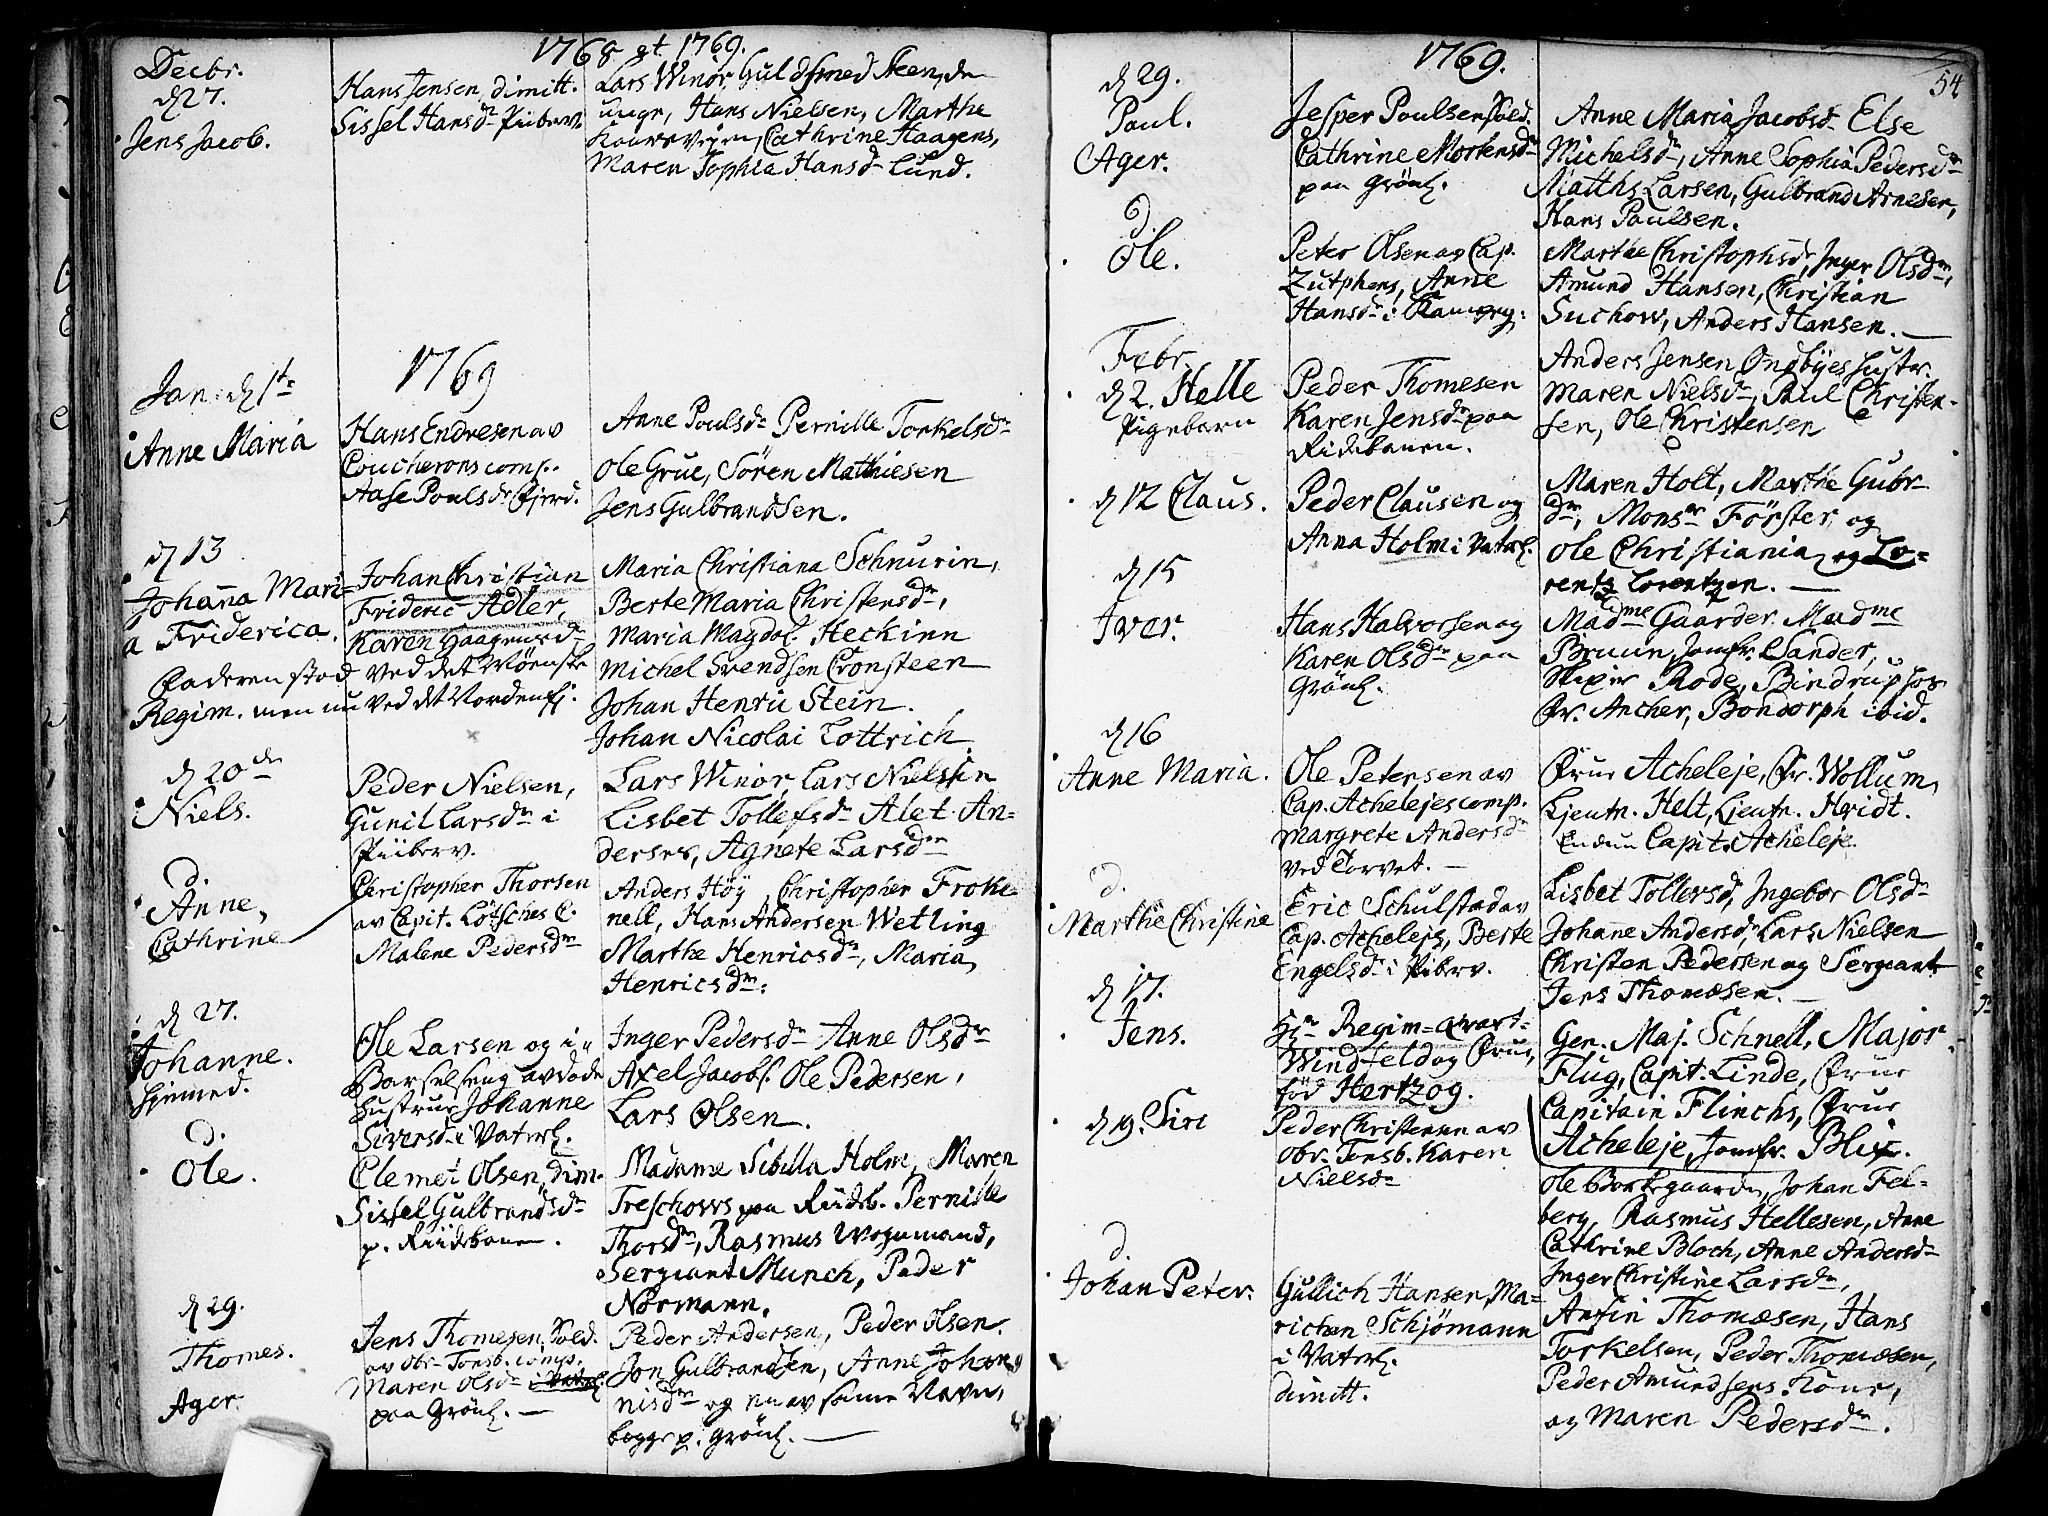 1768 et 1769.
Decbr.
d 27.
Jens Jacob.
Hans Jensen, dimitt.
Sissel Hansdr Piiberv.
Lars Winør, Guldsmed Steen, de
unge, Hans Nielsen, Marthe
Cathrine Haagens,
Maren Sophia Hansd Lund.
1769
Jan. d 1te
Anne Maria
Hans Endresen av
Coucherons comp.
Aase Poulsdr Pjerd.
Anne Poulsdr Pernille Torkelsdr
Ole Grue, Sören Mathiesen
Jens Gulbrandsen.
d 13
Johanna Mari-
a Friderica.
Johan Christian
Frideric Adler,
Karen Haagensdr
Faderen stod ved det Mörenske
Regim. men nu ved det Nordenfj.
Maria Christiana Schnurin,
Berte Maria Christensdr,
Maria Magdal. Heckinn
Michel Svendsen Cronsteen
Johan Henric Stein.
Johan Nicolai Lottrich.
d 20de
Niels.
Peder Nielsen,
Gunil Larsdr i
Piiberv.
Lars Winör, Lars Nielsen
Lisbet Tollefsdr Alet An-
derses, Agnete Larsdr
d
Anne,
Cathrine
Christopher Thorsen
av Capit. Lötsches C.
Malene Pedersdr
Anders Höy, Christopher Froke-
nell, Hans Andersen Wetling
Marthe Henricsdr, Maria
Henricsdr:
d 27.
Johanne.
hjemed.
Ole Larsen og i
Barselseng avdöde
Hustrue Johanne
Siversdr i Vaterl.
Inger Pedersdr Anne Olsdr
Axel Jacobs. Ole Pedersen,
Lars Olsen.
d.
Ole.
Clemet Olsen, dim.
Sissel Gulbrandsdr
p. Riidebanen.
Madame Sibilla Holm, Maren
Treschows paa Riideb. Pernille
Thorsdr, Rasmus Wognmand,
Sergeant Munch, Peder
Normann.
d 29.
Thomes.
Ager.
Jens Thomesen, Sold.
av Obr. Tonsb. comp.
Maren Olsdr i Vaterl.
paa Grönl.
Peder Andersen, Peder Olsen.
Jon Gulbrandsen, Anne Johan-
nisdr og en av samme Navn,
begge p. Grönl.
1769.
54
d 29.
Paul.
Ager.
Jesper Poulsen Sold.
Cathrine Mortensdr
paa Grönl.
Anne Maria Jacobsd Else
Michelsdr, Anne Sophia Pedersdr
Matths Larsen, Gulbrand Arnesen,
Hans Paulsen.
d.
Ole.
Peter Olsen av Cap.
Zutphens, Anne
Hansdr i
Marthe Christophsdr, Inger Olsdr,
Amund Hansen, Christian
Suchow, Anders Hansen.
Febr.
d 2. Helle
Pigebarn
Peder Thomesen
Karen Jensdr paa
Ridebanen.
Anders Jensen Ongbyes Hustr.
Maren Nielsdr, Paul Christen-
sen, Ole Christensen
d 12 Claus.
Peder Clausen og
Anna Holm i Vaterl.
Maren Holt, Marthe Gubr-
dr, Monsr Förster, og
Ole Christiania og Lo-
rentz Lorentzen.
d 15
Iver.
Hans Halvorsen og
Karen Olsdr paa
Grönl.
Madme Gaarder Madme
Bruun, Jomfr. Sander,
Skiper Rode, Bindrup hos
Fr. Ancher, Bondorph ibid.
d 16
Anne Maria.
Ole Petersen av
Cap. Achelejes comp.
Margrete Andersdr
ved Torvet.
Frue Acheleje, Fr. Wollum,
Ljeutn. Helt, Ljeutn. Hvidt.
Endnu Capit. Acheleje.
d.
Marthe Christine
Eric Schulstad av
Cap. Achelejs, Berte
Engelsdr i Piberv.
Lisbet Tollersd, Ingebor Olsdr
Johane Andersdr, Lars Nielsen
Christen Pedersen og Sergeant
Jens Thomæsen.
d 17.
Jens.
Hr Regim=qvart=
Windfeld og Frue,
föd Hertzog.
Gen. Maj. Schnell, Major
Flug, Capit. Linde, Frue
Capitain Flinchs, Frue
Acheleje, Jomfr. Blix.
d 19. Siri
Peder Christensen av
Obr. Tonsb. Karen
Nielsdr
Ole Borkegaarden, Johan Fel-
berg, Rasmus Hellesen, Anne
Cathrine Bloch, Anne Andersdr
Inger Christine Larsdr,
d.
Johan Peter.
Gullich Hansen, Ma-
richen Schjömann
i Vaterl.
dimitt.
Anfin Thomæsen, Hans
Torkelsen, Peder Thomæsen,
Peder Amundsens Kone,
og Maren Pedersdr.